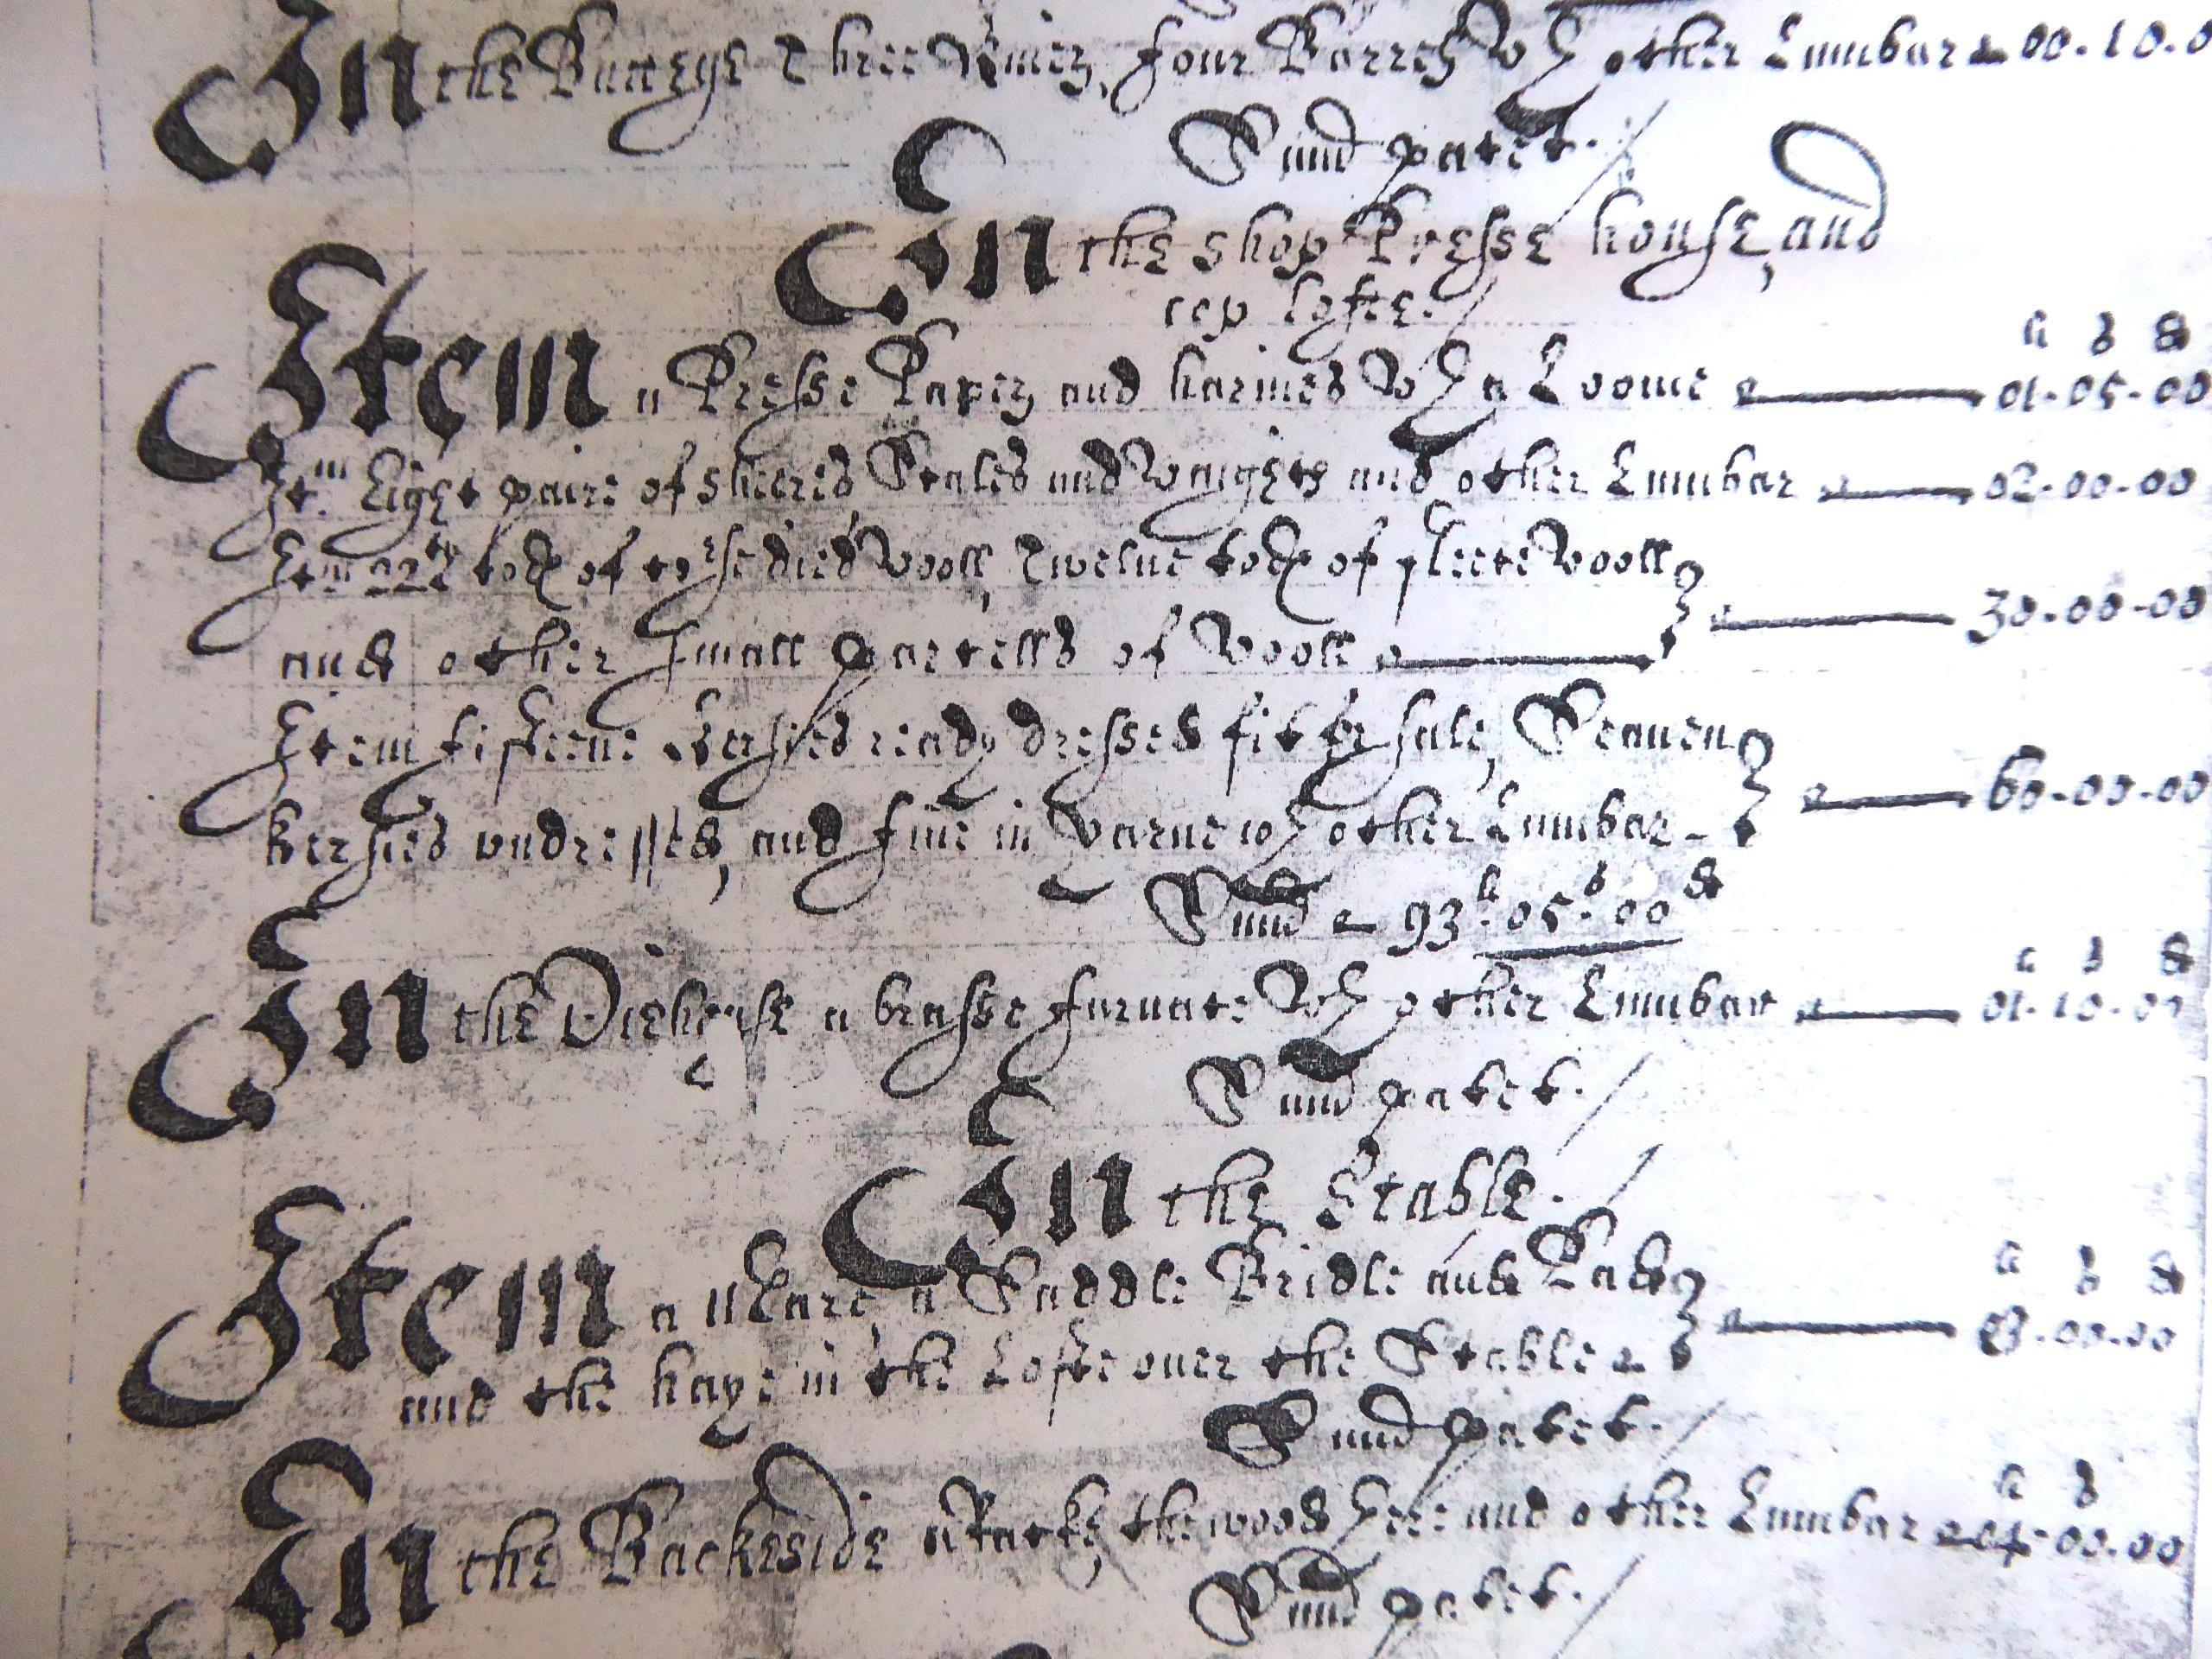 In the Butteye Three Kiues, four Barrells wth other Lumbar 00-10-0
Sum̄ patet.
In the shop Presse house, and
top lofte.
li s d
Item a Presse Papers and harnes wth a Loome 01-05-00
Itm Eight paire of sheres Scales and Waights and other Lumbar 02-00-00
Itm todd of died wooll, Twelue todd of fleece wooll
and other small parcells of wooll 30-00-00
Item fifteene Kersies ready dressed fitt for sale, Seauen
kersies vndressed, and fiue in Yarne wth other Lumbar 60-00-00
Sum̄ 93li. 05s. 00d
li s d
In the Diehouse a brasse furnace wth other Lumbar 01-10-00
Sum̄ patet.
In the Stable.
li s d
Item a Mare, a Saddle Bridle and Padd
and the haye in the Lofte ouer the Stable 03-00-00
Sum̄ patet.
li s
In the Backeside a Racke, the wood here and other Lumbar 04-00-00
Sum̄ patet.